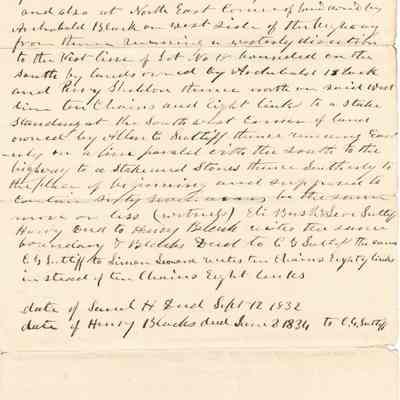 and also at North East corner of land owned by
Archabald Black on west side of the highway
from thence running a westerly direction
to the West line of Lot No 10 bounded on the
south by lands owned by Archabald Black
and Perry Sheldon thence north on said West
line ten Chains and Eight links to a stake
Standing at the South west corner of land
owned by Allen Sutliff thence running East
erly on a line paralel with the south to the
highway to a Stake and Stones thence Southerly to
the place of beginning and supposed to
contain sixty seven acres be the same
more or less (writings) Eli Bush & Levi Sutliff
Henry Dud to Henry Black writes the same
boundary & Blacks Dud to C G Sutliff the same
C G Sutliff to Simon Leonard writes ten Chains Eighty links
instead of ten Chains Eight links
date of Samuel H Dud Sept 12 1832
date of Henry Blacks dud June 8 1834 to C. G. Sutliff